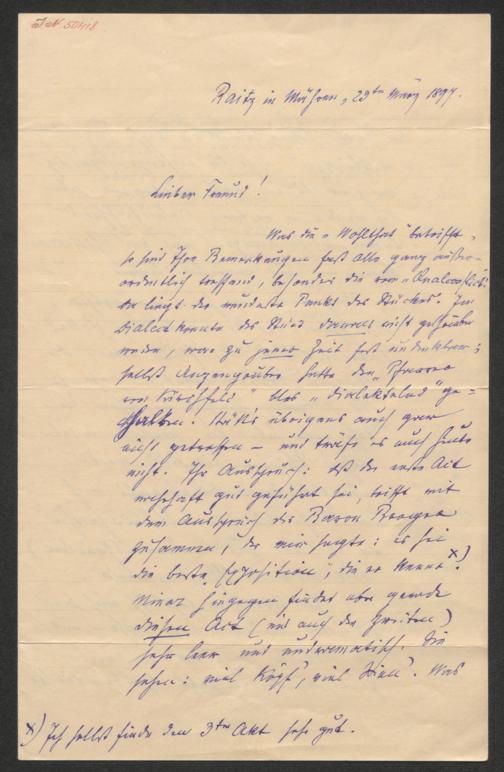 I.N. 50418
Raitz in Mähren, 29ten März 1897.
Lieber Freund!
Was die „Wohlthat" betrifft,
so sind Ihre Bemerkungen fast alle ganz außer-
ordentlich treffend, besonders die vom
da liegt der wundeste Punkt des Stückes. Im
Dialect konnte das Stück damals nicht geschrieben
werden, war zu jener Zeit fast undenkbar;
selbst Anzengruber hatte den „Pfarrer
von Kirchfeld" blos „dialektelnd" ge-
halten. Hätt's übrigens auch gar
nicht getroffen – und träfe es auch heute
nicht. Ihr Ausspruch: daß der erste Act
meisterhaft gut geführt sei, trifft mit
dem Ausspruch des Baron Berger
zusammen, der mir sagte: es sei
die beste „Exposition", die er kenne x).
Minor hingegen findet aber gerade
diesen Act (und auch den zweiten)
sehr leer und undramatisch. Sie
sehen: viel Köpf', viel Sinn'. Was
x) Ich selbst finde den 3ten Akt sehr gut.